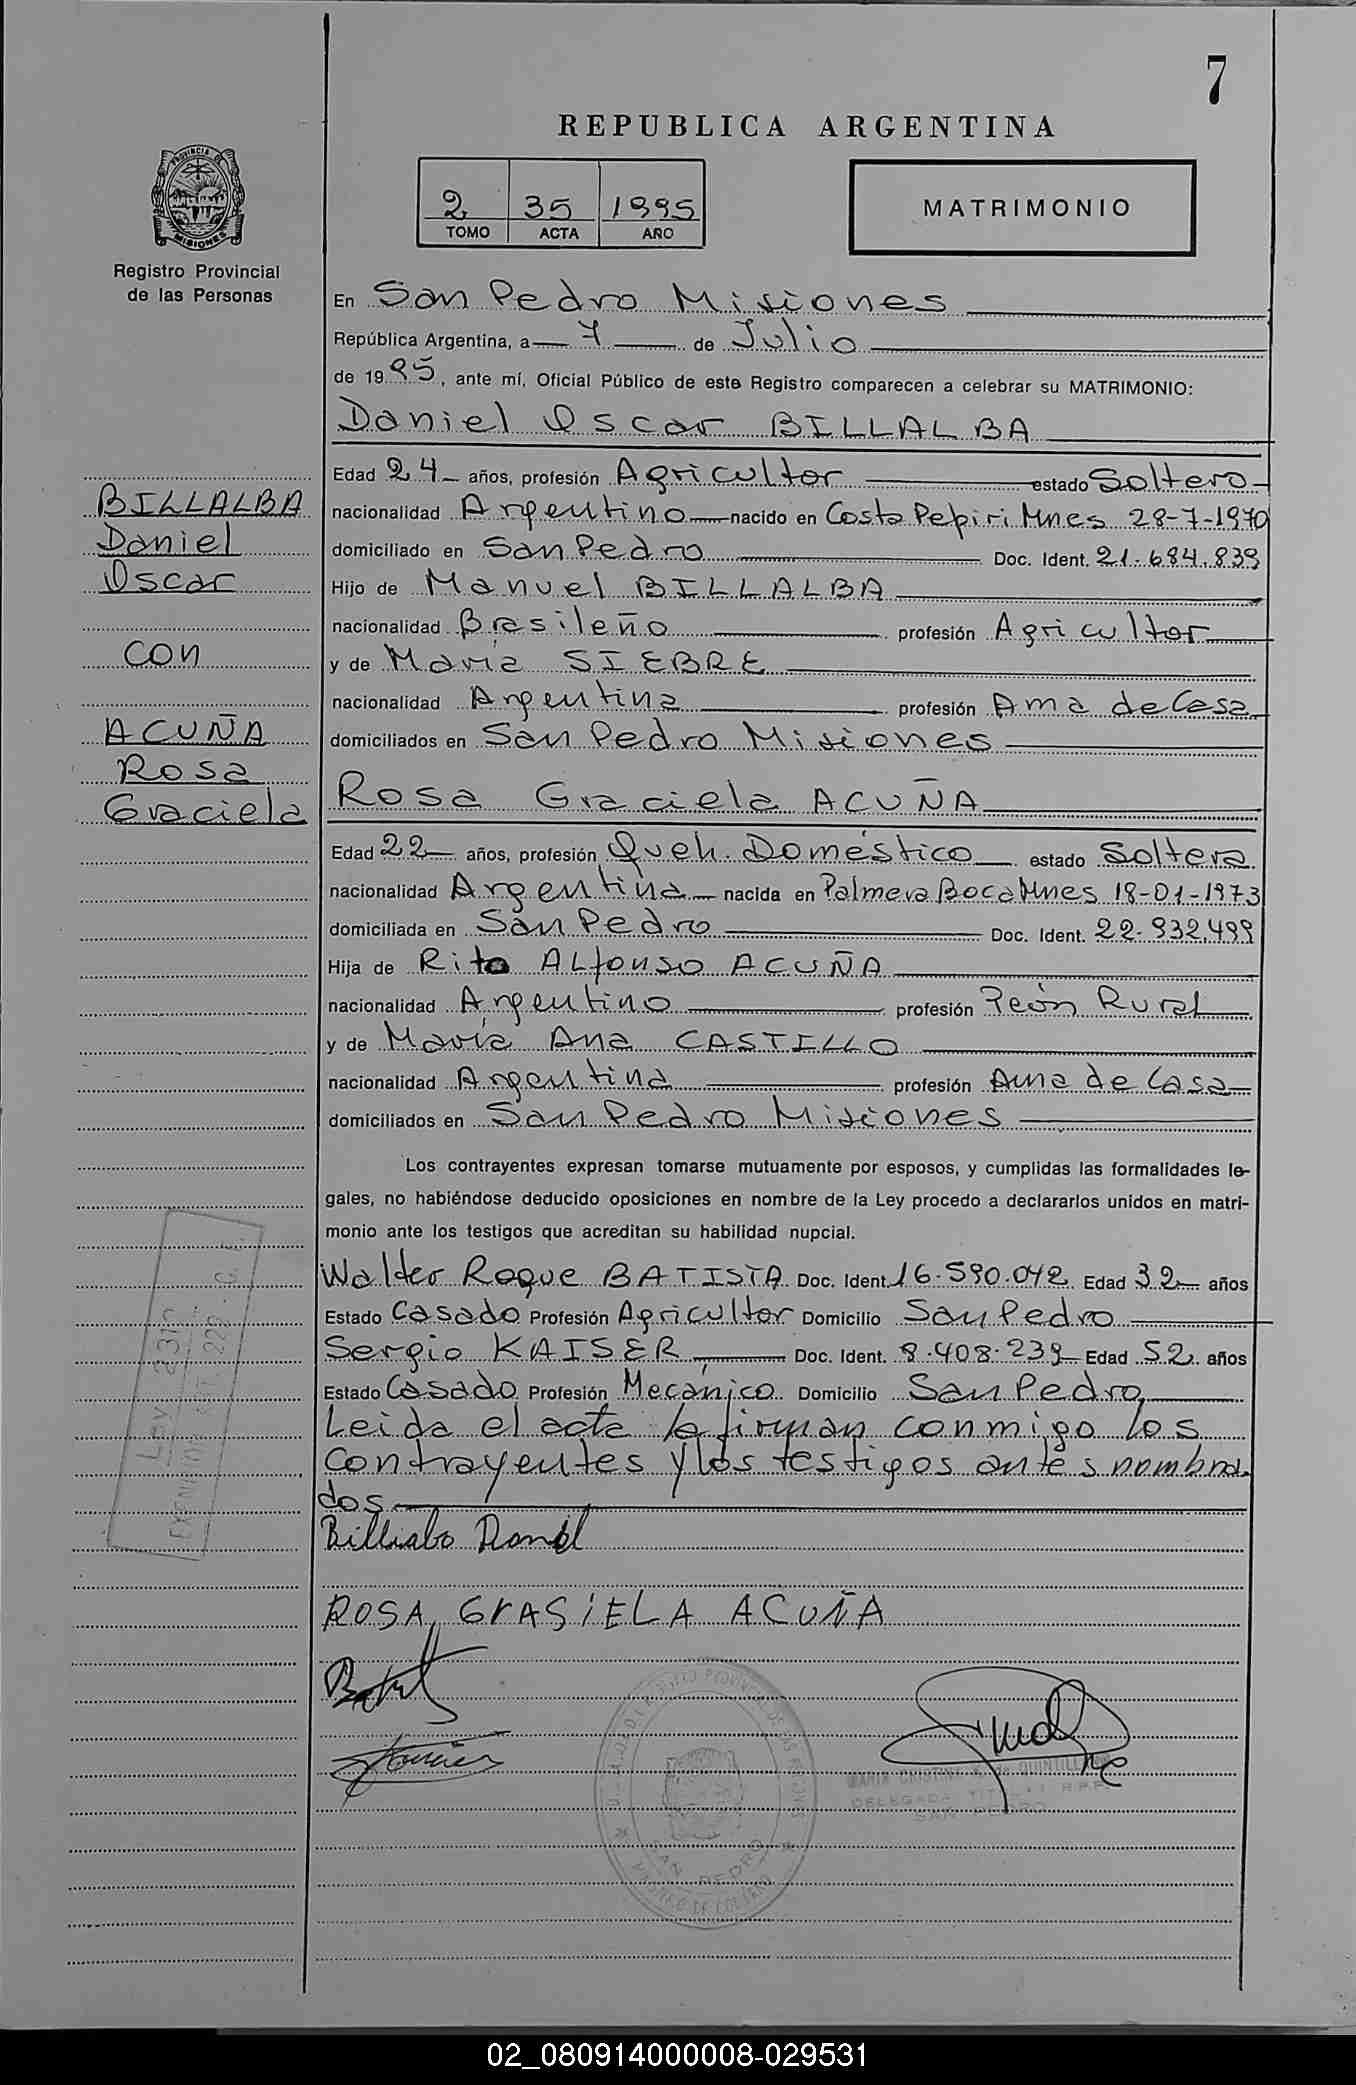 7
REPUBLICA ARGENTINA
2 35 1995
TOMO ACTA AÑO
MATRIMONIO
PROVINCIA DE
MISIONES
Registro Provincial
de las Personas
En San Pedro Misiones
República Argentina, a 7 de Julio
de 1995, ante mí, Oficial Público de este Registro comparecen a celebrar su MATRIMONIO:
Daniel Oscar BILLALBA
Edad 24 años, profesión Agricultor estado Soltero
nacionalidad Argentino nacido en Costa Pepiri Mnes 28-7-1970
domiciliado en San Pedro Doc. Ident. 21.684.839
Hijo de Manuel BILLALBA
nacionalidad Brasileño profesión Agricultor
y de María SIEBRE
nacionalidad Argentina profesión Ama de Casa
domiciliados en San Pedro Misiones
BILLALBA
Daniel
Oscar
con
ACUÑA
Rosa
Graciela
Rosa Graciela ACUÑA
Edad 22 años, profesión Queh. Doméstico estado Soltera
nacionalidad Argentina nacida en Palmera Boca Mnes 18-01-1973
domiciliada en San Pedro Doc. Ident. 22.932.499
Hija de Rito ALfonso ACUÑA
nacionalidad Argentino profesión Peón Rural
y de María Ana CASTILLO
nacionalidad Argentina profesión Ama de Casa
domiciliados en San Pedro Misiones
Los contrayentes expresan tomarse mutuamente por esposos, y cumplidas las formalidades le-
gales, no habiéndose deducido oposiciones en nombre de la Ley procedo a declararlos unidos en matri-
monio ante los testigos que acreditan su habilidad nupcial.
Walter Roque BATISTA Doc. Ident. 16.590.042 Edad 32 años
Estado Casado Profesión Agricultor Domicilio San Pedro
Sergio KAISER Doc. Ident. 8.408.239 Edad 52 años
Estado Casado Profesión Mecánico Domicilio San Pedro
Leida el acta la firman conmigo los
contrayentes y los testigos antes nombra-
dos
Billialba Daniel
ROSA GrASiELA ACUÑA
SAN PEDRO
DELEGADA
SAN PEDRO
02_080914000008-029531